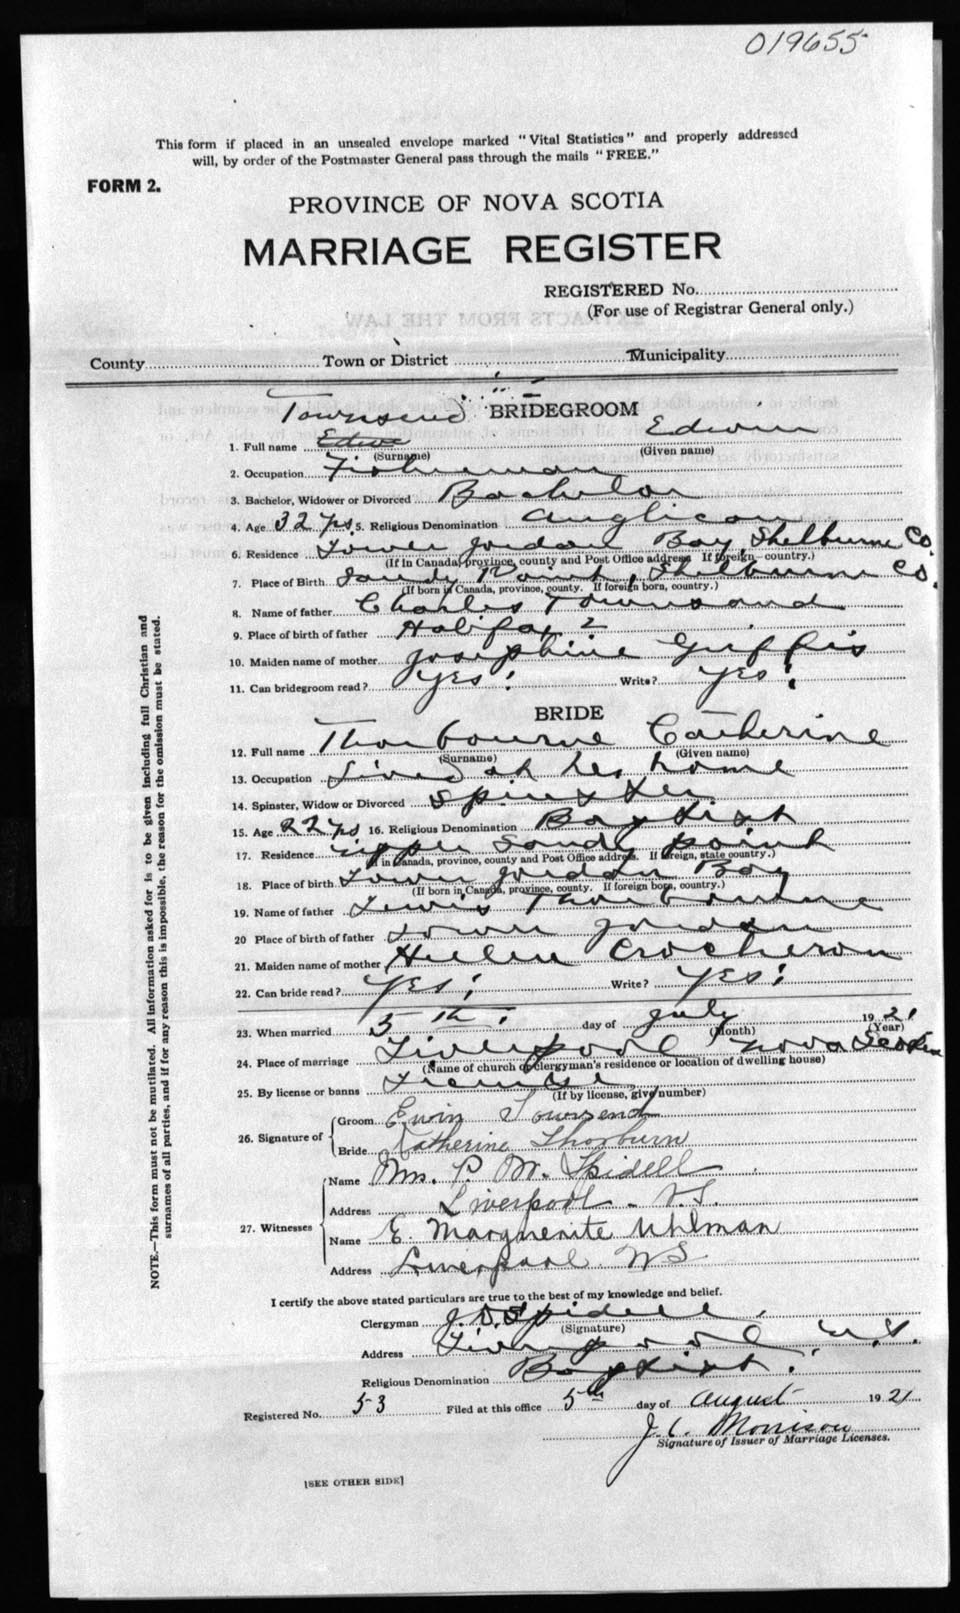 019655
This form if placed in an unsealed envelope marked "Vital Statistics" and properly addressed
will, by order of the Postmaster General pass through the mails "FREE."
FORM 2.
PROVINCE OF NOVA SCOTIA
MARRIAGE REGISTER
REGISTERED No.
(For use of Registrar General only.)
County Town or District Municipality
Townsend BRIDEGROOM Edwin
1. Full name Edwi
(Surname) (Given name)
2. Occupation Fisherman
3. Bachelor, Widower or Divorced Bachelor
4. Age 32 yrs 5. Religious Denomination Anglican
6. Residence Lower Jordan Bay, Shelburne Co.
(If in Canada, province, county and Post Office address. If foreign—country.)
7. Place of Birth Sandy Point, Shelburne Co.
(If born in Canada, province, county. If foreign born, country.)
8. Name of father Charles Townsend
9. Place of birth of father Halifax
10. Maiden name of mother Josephine Griffis
11. Can bridegroom read? Yes! Write? Yes!
BRIDE
12. Full name Thorbourne Catherine
(Surname) (Given name)
13. Occupation Lived at her home
14. Spinster, Widow or Divorced Spinster
15. Age 22 yrs 16. Religious Denomination Baptist
17. Residence Upper Sandy Point
(If in Canada, province, county and Post Office address. If foreign, state country.)
18. Place of birth Lower Jordan Bay
(If born in Canada, province, county. If foreign born, country.)
19. Name of father Lewis Thorbourne
20 Place of birth of father Lower Jordan
21. Maiden name of mother Hellen Crocheron
22. Can bride read? Yes! Write? Yes!
23. When married 5th. day of July 1921
(Month) (Year)
24. Place of marriage Liverpool Nova Scotia
(Name of church or clergyman's residence or location of dwelling house)
25. By license or banns License
(If by license, give number)
26. Signature of Groom Ewin Townsend
Bride Katherine Thorburn
27. Witnesses Name Mrs. P. W. Spidell
Address Liverpool - N.S.
Name E. Marguerite Uhlman
Address Liverpool N S
I certify the above stated particulars are true to the best of my knowledge and belief.
Clergyman J. D. Spidell
(Signature)
Address Liverpool N.S.
Religious Denomination Baptist.
Registered No. 53 Filed at this office 5th day of August 1921
J. C. Morrison
Signature of Issuer of Marriage Licenses.
[SEE OTHER SIDE]
NOTE.—This form must not be mutilated. All information asked for is to be given including full Christian and
surnames of all parties, and if for any reason this is impossible, the reason for the omission must be stated.